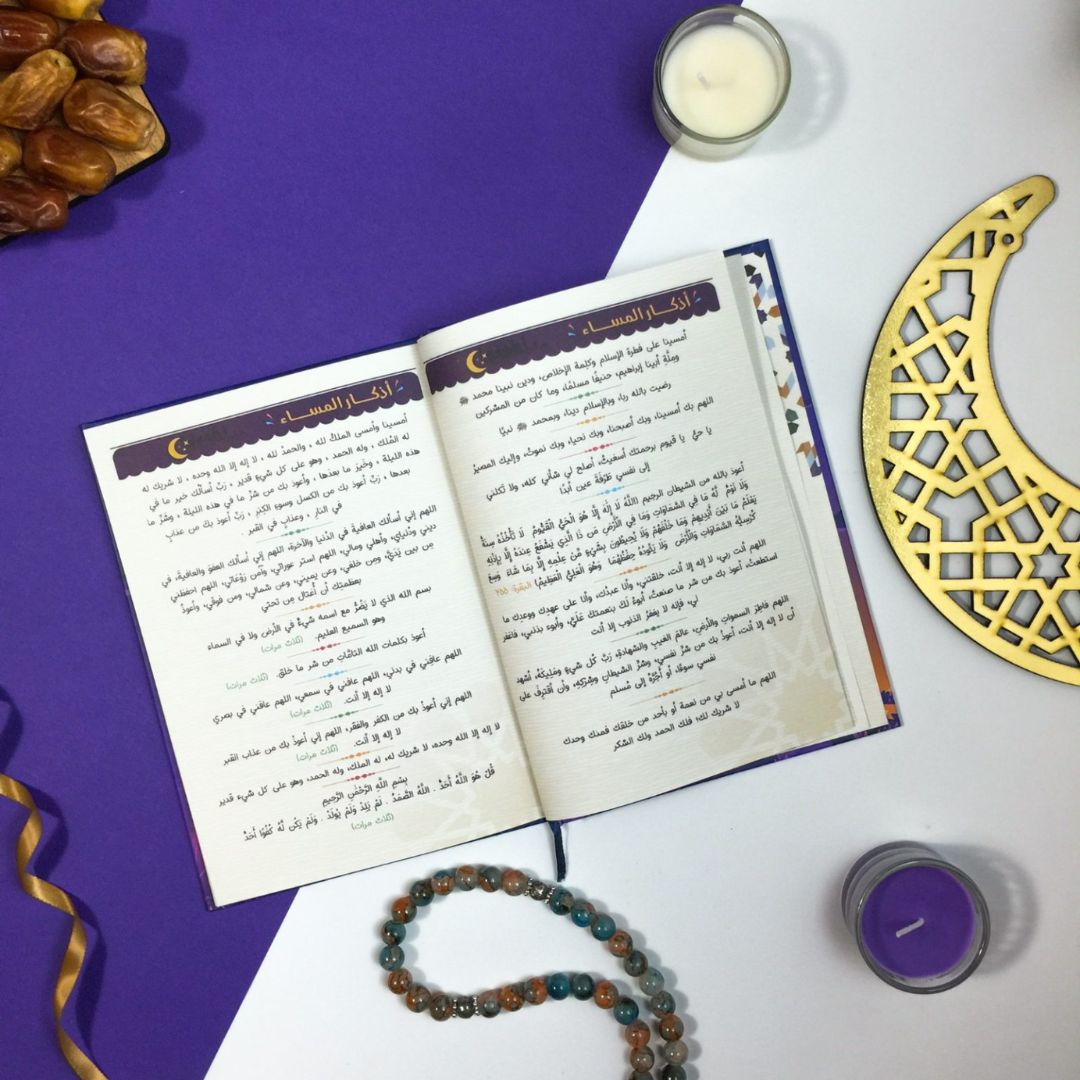 أذكار المساء
أمسينا على فطرة الإسلام وكلمة الإخلاص، ودين نبينا محمد ﷺ
وملَّةِ أبينا إبراهيم، حنيفًا مسلمًا، وما كان من المشركين
رضيت بالله ربا، وبالإسلام دينا، وبمحمد ﷺ نبيًا
اللهم بك أمسينا، وبك أصبحنا، وبك نحيا، وبك نموت، وإليك المصيرُ
يا حيُّ يا قيوم برحمتك أستغيثُ، أصلح لي شأني كله، ولا تكلني
إلى نفسي طَرْفَةَ عين أبدًا
أعوذ بالله من الشيطان الرجيم (اللَّهُ لَا إِلَٰهَ إِلَّا هُوَ الْحَيُّ الْقَيُّومُ لَا تَأْخُذُهُ سِنَةٌ
وَلَا نَوْمٌ لَّهُ مَا فِي السَّمَاوَاتِ وَمَا فِي الْأَرْضِ مَن ذَا الَّذِي يَشْفَعُ عِندَهُ إِلَّا بِإِذْنِهِ
يَعْلَمُ مَا بَيْنَ أَيْدِيهِمْ وَمَا خَلْفَهُمْ وَلَا يُحِيطُونَ بِشَيْءٍ مِّنْ عِلْمِهِ إِلَّا بِمَا شَاءَ وَسِعَ
كُرْسِيُّهُ السَّمَاوَاتِ وَالْأَرْضَ وَلَا يَئُودُهُ حِفْظُهُمَا وَهُوَ الْعَلِيُّ الْعَظِيمُ) البقرة: ٢٥٥
اللهم أنت ربي، لا إله إلا أنت، خلقتني، وأنا عبدك، وأنا على عهدك ووعدك ما
استطعتُ، أعوذ بك من شر ما صنعتُ، أبوءُ لَكَ بنعمتكَ عَلَيَّ، وأبوء بذنبي، فاغفر
لي، فإنه لا يغفرُ الذنوب إلا أنت
اللهم فاطِرَ السمواتِ والأرضِ، عالمَ الغيبِ والشهادةِ، رَبَّ كُلِ شيءٍ ومَلِيكَهُ، أشهد
أن لا إله إلا أنت، أعوذُ بك من شَرِّ نفسي، وشَرِّ الشيطانِ وشِركِهِ، وأن أقترِفَ على
نفسي سوءًا، أو أَجُرَّهُ إلى مُسلم
اللهم ما أمسى بي من نعمة أو بأحد من خلقك فمنك وحدك
لا شريك لك؛ فلك الحمد ولك الشكر
أذكار المساء
أمسينا وأمسى الملكُ لله ، والحمدُ لله ، لا إله إلا الله وحده ، لا شريك له
له المُلك ، وله الحمد ، وهو على كل شيءٍ قدير ، رَبِّ أسألُك خير ما في
هذه الليلة ، وخيرَ ما بعدها ، وأعوذ بك من شرِّ ما في هذه الليلة ، وشرِّ ما
بعدها ، رَبِّ أعوذ بك من الكسل وسوءِ الكِبَرِ ، رَبِّ أعوذ بك من عذابٍ
في النار ، وعذابٍ في القبر .
اللهم إني أسألك العافية في الدُّنيا والآخرة، اللهم إني أسألك العفوَ والعافية، في
ديني ودُنيايَ، وأهلي ومالي، اللهم استر عوراتي، وآمن رَوْعَاتِي، اللهم احفظني
مِن بين يَدَيَّ، ومن خلفي، وعن يميني، وعن شمالي، ومن فوقي، وأعوذُ
بعظمتِكَ أن أُغتَالَ مِن تَحتي
بسم الله الذي لا يَضُرُّ مع اسمه شيءٌ في الأرض ولا في السماء
وهو السميع العليم. (ثلاث مرات)
أعوذ بكلمات الله التامَّاتِ من شر ما خلق. (ثلاث مرات)
اللهم عافِني في بدني، اللهم عافني في سمعي، اللهم عافني في بصري
لا إله إلا أنت. (ثلاث مرات)
اللهم إني أعوذُ بك من الكفر والفقر، اللهم إني أعوذُ بك من عذاب القبر
لا إله إلا أنت. (ثلاث مرات)
لا إله إلا الله وحده، لا شريك له، له الملك، وله الحمد، وهو على كل شيء قدير
بِسْمِ اللَّهِ الرَّحْمَٰنِ الرَّحِيمِ
قُلْ هُوَ اللَّهُ أَحَدٌ . اللَّهُ الصَّمَدُ . لَمْ يَلِدْ وَلَمْ يُولَدْ . وَلَمْ يَكُن لَّهُ كُفُوًا أَحَدٌ
(ثلاث مرات)